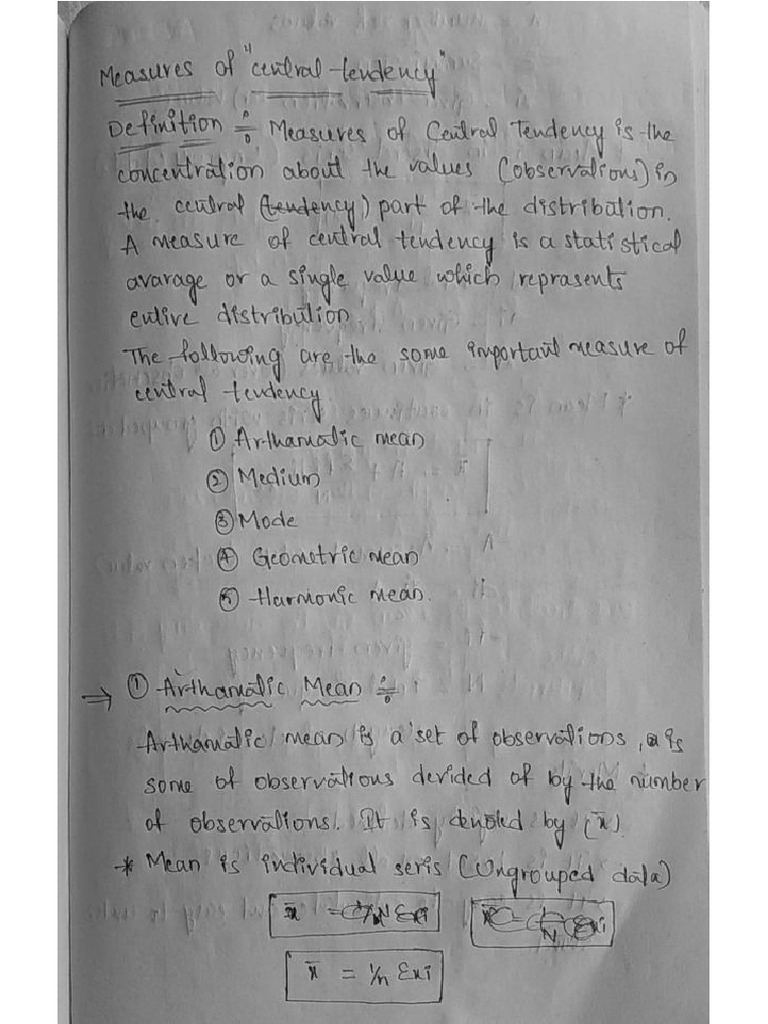 Measures of "central tendency"
Definition :- Measures of Central Tendency is the
concentration about the values (observations) in
the central (tendency) part of the distribution.
A measure of central tendency is a statistical
avarage or a single value which reprasents
entire distribution.
The following are the some important measure of
central tendency.
① Arthamatic mean
② Medium
③ Mode
④ Geometric mean
⑤ Harmonic mean.
⇒ ① Arthamatic Mean :-
Arthamatic mean is a set of observations, is
some of observations devided of by the number
of observations. It is denoted by (x̄)
* Mean is individual seris (Ungrouped data)
x̄ = 1/N Σxi
x̄ = 1/n Σxi